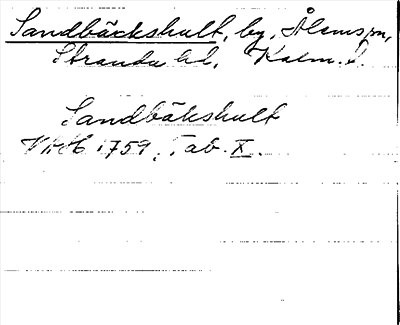 Sandbäckshult, by, Ålems sn,
Stranda hd, Kalm. l.
Sandbäkshult
1759, Tab. X.